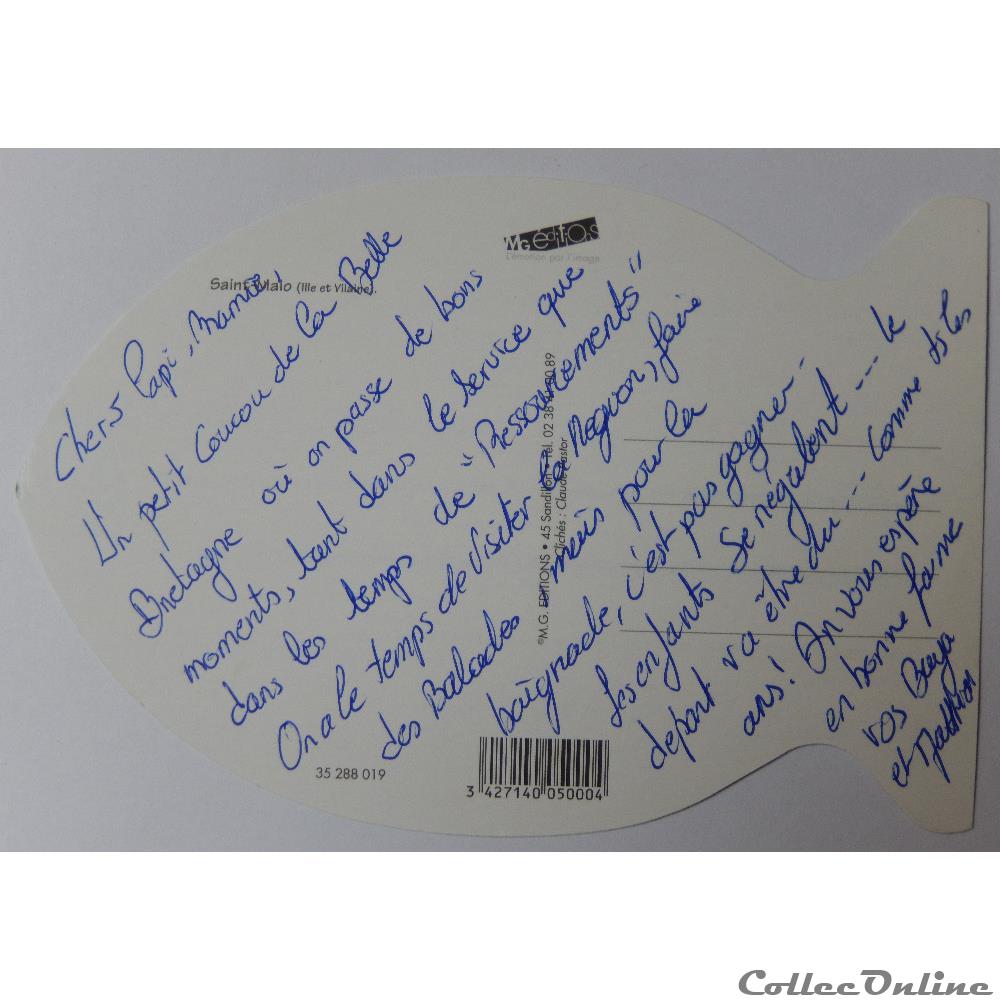 MG éditions
L'émotion par l'image
Saint-Malo (Ille et Vilaine).
Chers Papi, Mamie,
Un petit Coucou de la Belle
Bretagne où on passe de bons
moments, tant dans le service que
dans les temps de "Ressourcements"
On a le temps de Visiter la Région, faire
des Balades mais pour la
baignade, c'est pas gagner.
Les enfants se régalent ---- le
départ va être du --- comme ts les
ans! On vous espère
en bonne forme
vos
et
©M.G. EDITIONS • 45 Sandillon • Tél. 02 38
Clichés : Claude Pastor
35 288 019
3 427140 050004
CollecOnline